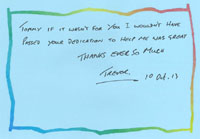 TOMMY IF IT WASN'T FOR YOU I WOULDN'T HAVE
PASSED YOUR DEDICATION TO HELP ME WAS GREAT
THANKS EVER SO MUCH
TREVOR.
10 Oct. 13